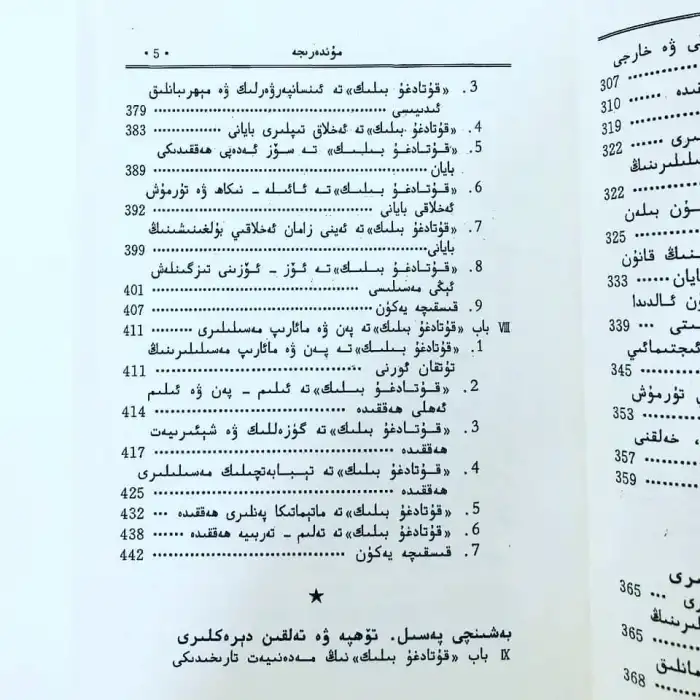 مۇندەرىجە
• 5 •
3. «قۇتادغۇ بىلىك» تە ئىنسانپەرۋەرلىك ۋە مېھرىبانلىق
ئىدىيىسى ........................ 379
4. «قۇتادغۇ بىلىك» تە ئەخلاق تىپلىرى بايانى ............... 383
5. «قۇتادغۇ بىلىك» تە سۆز ئەدەپى ھەققىدىكى
بايان ........................ 389
6. «قۇتادغۇ بىلىك» تە ئائىلە - نىكاھ ۋە تۇرمۇش
ئەخلاقى بايانى ........................ 392
7. «قۇتادغۇ بىلىك» تە ئەينى زامان ئەخلاقىي بۇلغىنىشىنىڭ
بايانى ........................ 399
8. «قۇتادغۇ بىلىك» تە ئۆز - ئۆزىنى تىزگىنلەش
ئېڭى مەسىلىسى ........................ 401
9. قىسقىچە يەكۈن ........................ 407
VIII باب «قۇتادغۇ بىلىك» تە پەن ۋە مائارىپ مەسىلىلىرى ......... 411
1. «قۇتادغۇ بىلىك» تە پەن ۋە مائارىپ مەسىلىلىرىنىڭ
تۇتقان ئورنى ........................ 411
2. «قۇتادغۇ بىلىك» تە ئىلىم - پەن ۋە ئىلىم
ئەھلى ھەققىدە ........................ 414
3. «قۇتادغۇ بىلىك» تە گۈزەللىك ۋە شېئىرىيەت
ھەققىدە ........................ 417
4. «قۇتادغۇ بىلىك» تە تىبابەتچىلىك مەسىلىلىرى
ھەققىدە ........................ 425
5. «قۇتادغۇ بىلىك» تە ماتېماتىكا پەنلىرى ھەققىدە ... 432
6. «قۇتادغۇ بىلىك» تە تەلىم - تەربىيە ھەققىدە ...... 438
7. قىسقىچە يەكۈن ........................ 442
★
بەشىنچى پەسىل. تۆھپە ۋە تەلقىن دېرەكلىرى
IX باب «قۇتادغۇ بىلىك» نىڭ مەدەنىيەت تارىخىدىكى
ۋە خارجى
307
310
319
322
322
بىلەن
325
قانۇن
333
ئالدىدا
339
345
تۇرمۇش
353
خەلقنى
357
359
365
365
368